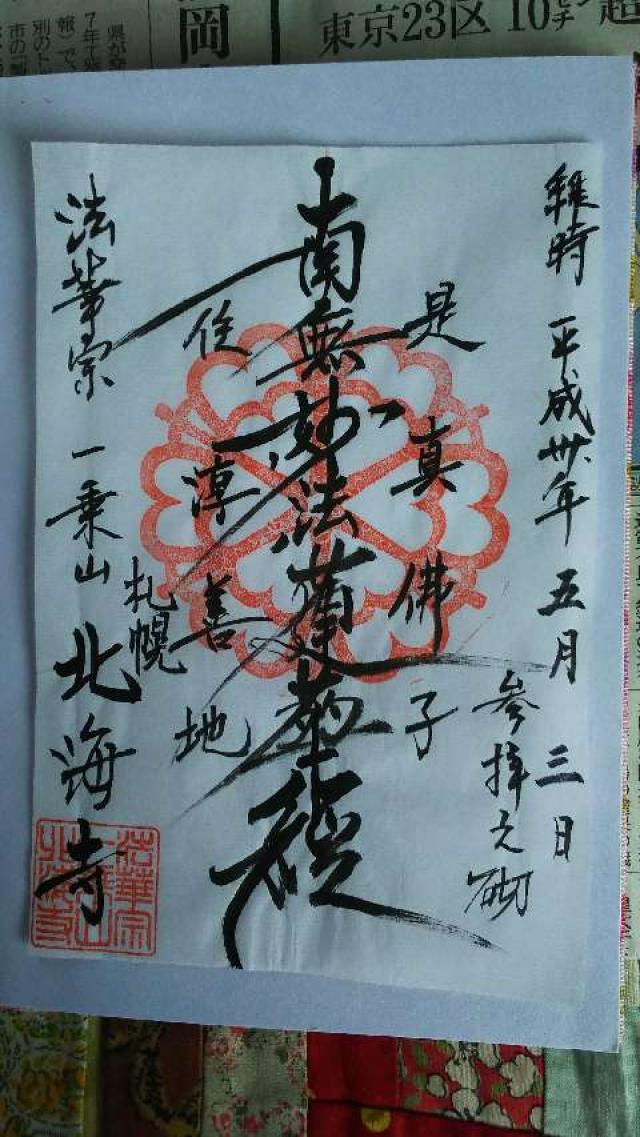 岡
東京23区 10
維時 平成卅年 五月 三日
参拝之砌
是真佛子
南無妙法蓮華経
住淳善地
札幌
法華宗 一乗山 北海寺
法華宗
一乗山
北海寺